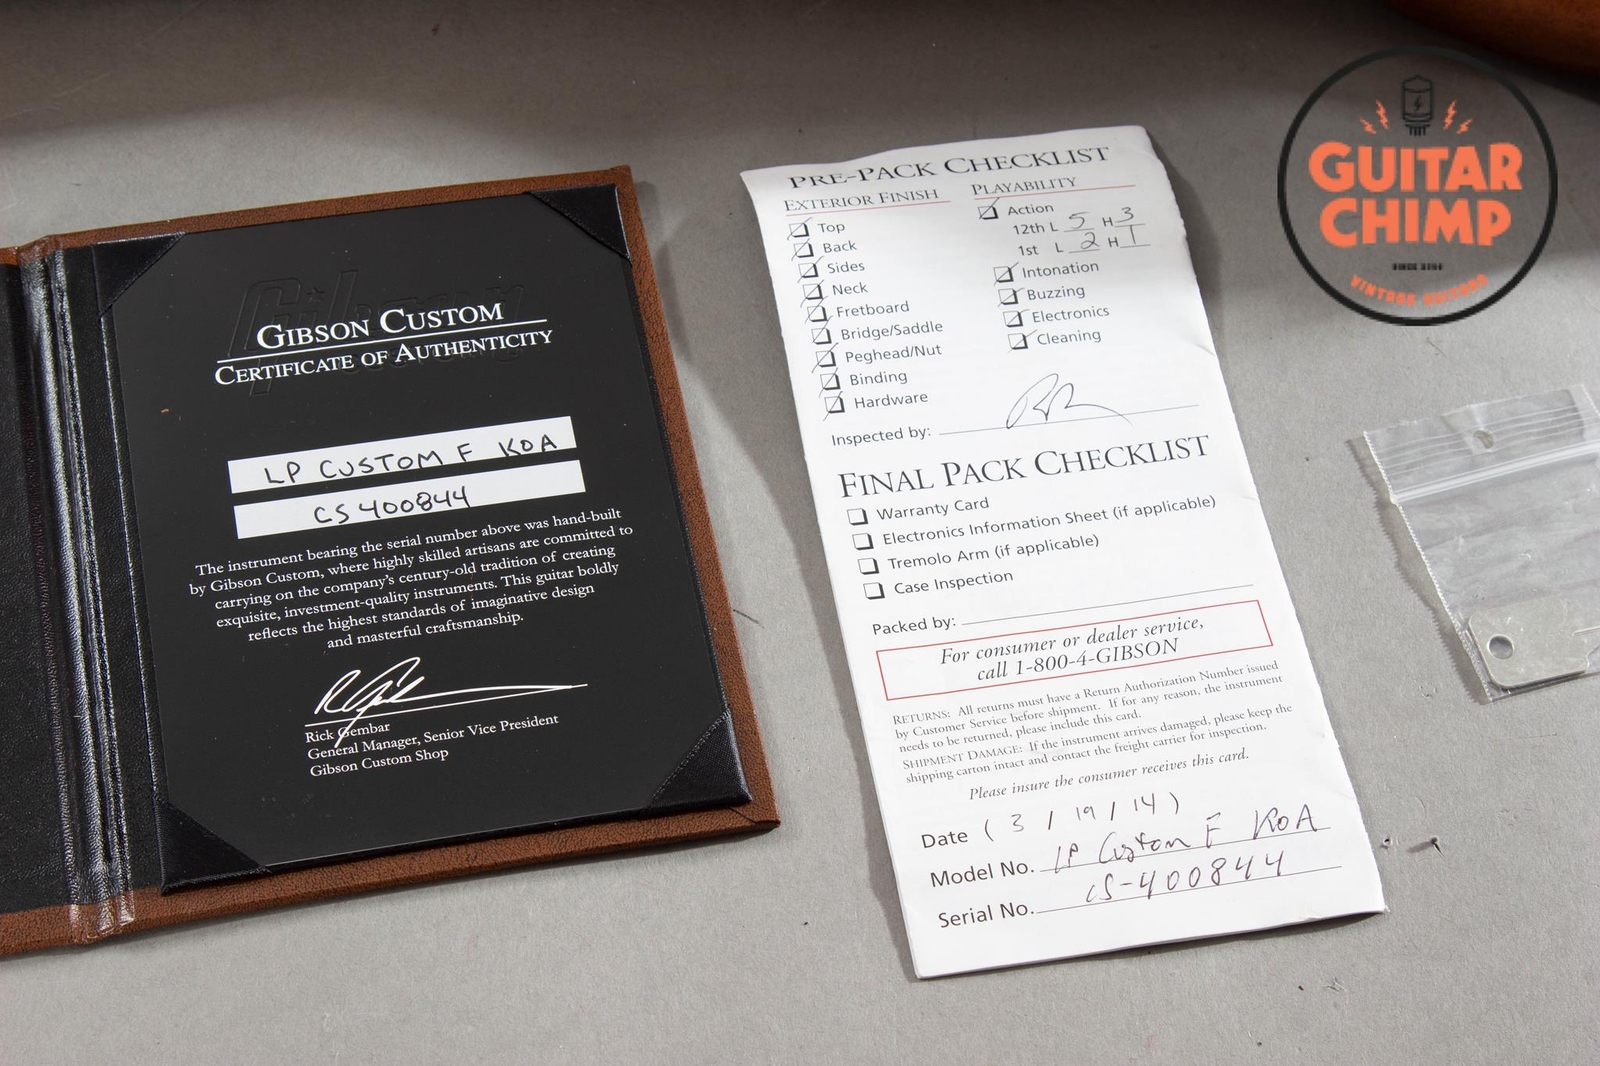 GIBSON CUSTOM
CERTIFICATE OF AUTHENTICITY
LP CUSTOM F KOA
CS 400844
The instrument bearing the serial number above was hand-built
by Gibson Custom, where highly skilled artisans are committed to
carrying on the company's century-old tradition of creating
exquisite, investment-quality instruments. This guitar boldly
reflects the highest standards of imaginative design
and masterful craftsmanship.
Rick Gembar
General Manager, Senior Vice President
Gibson Custom Shop
PRE-PACK CHECKLIST
EXTERIOR FINISH
Top
Back
Sides
Neck
Fretboard
Bridge/Saddle
Peghead/Nut
Binding
Hardware
PLAYABILITY
Action
12th L 5 H 3
1st L 2 H 1
Intonation
Buzzing
Electronics
Cleaning
Inspected by:
FINAL PACK CHECKLIST
Warranty Card
Electronics Information Sheet (if applicable)
Tremolo Arm (if applicable)
Case Inspection
Packed by:
For consumer or dealer service,
call 1-800-4-GIBSON
RETURNS: All returns must have a Return Authorization Number issued
by Customer Service before shipment. If for any reason, the instrument
needs to be returned, please include this card.
SHIPMENT DAMAGE: If the instrument arrives damaged, please keep the
shipping carton intact and contact the freight carrier for inspection.
Please insure the consumer receives this card.
Date ( 3 / 19 / 14 )
Model No. LP Custom F KOA
Serial No. CS-400844
GUITAR
CHIMP
VINTAGE GUITARS